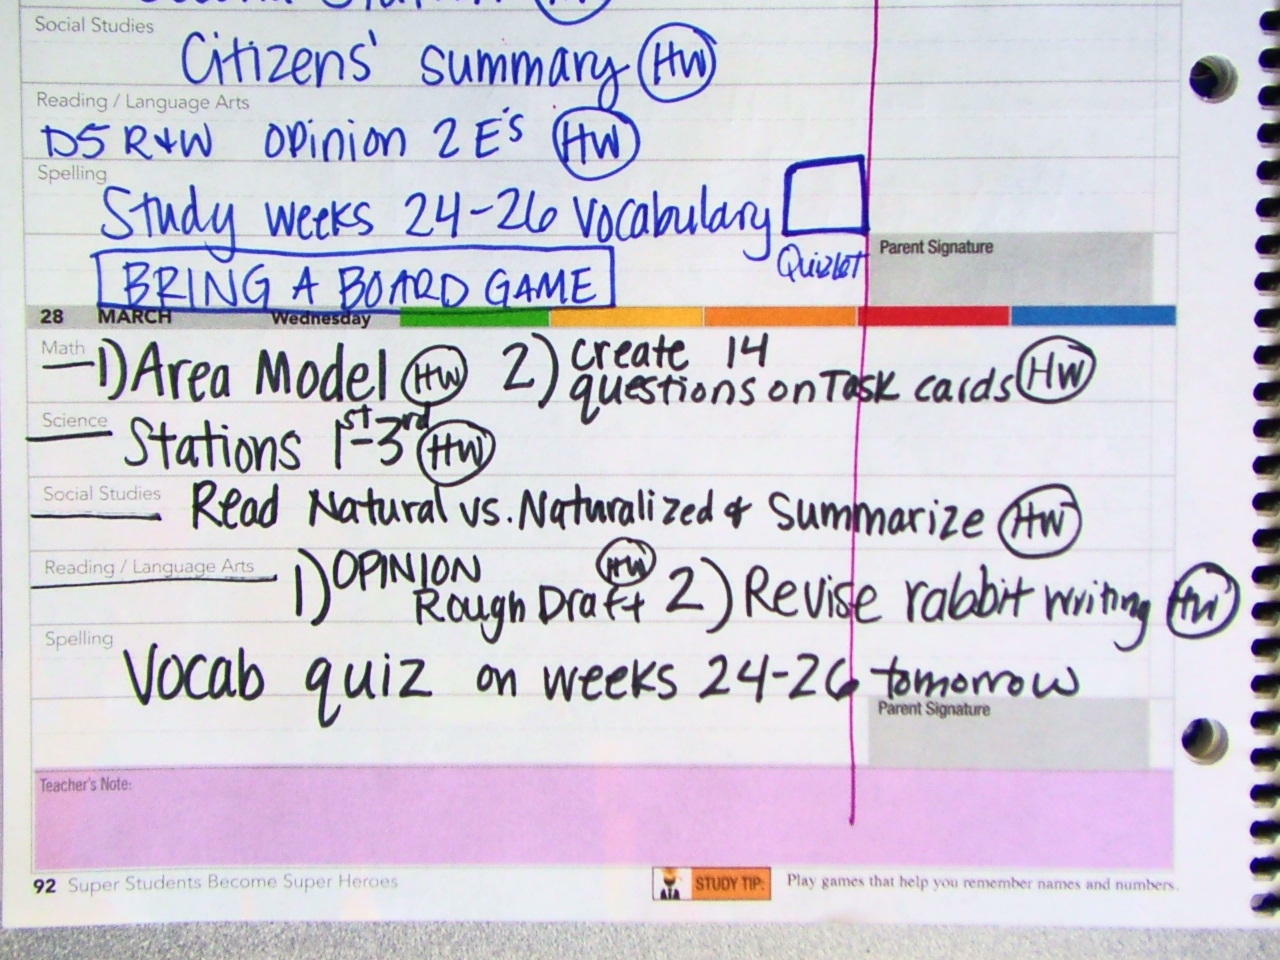 Social Studies
Citizens' summary HW
Reading / Language Arts
D5 R+W Opinion 2 E's HW
Spelling
Study weeks 24-26 vocabulary
Quizlet
Parent Signature
BRING A BOARD GAME
28 MARCH Wednesday
Math
1) Area Model HW 2) create 14 questions on Task cards HW
Science
Stations 1st-3rd HW
Social Studies
Read Natural vs. Naturalized & Summarize HW
Reading / Language Arts
1) OPINION Rough Draft HW 2) Revise rabbit writing HW
Spelling
Vocab quiz on weeks 24-26 tomorrow
Parent Signature
Teacher's Note:
92 Super Students Become Super Heroes
STUDY TIP: Play games that help you remember names and numbers.